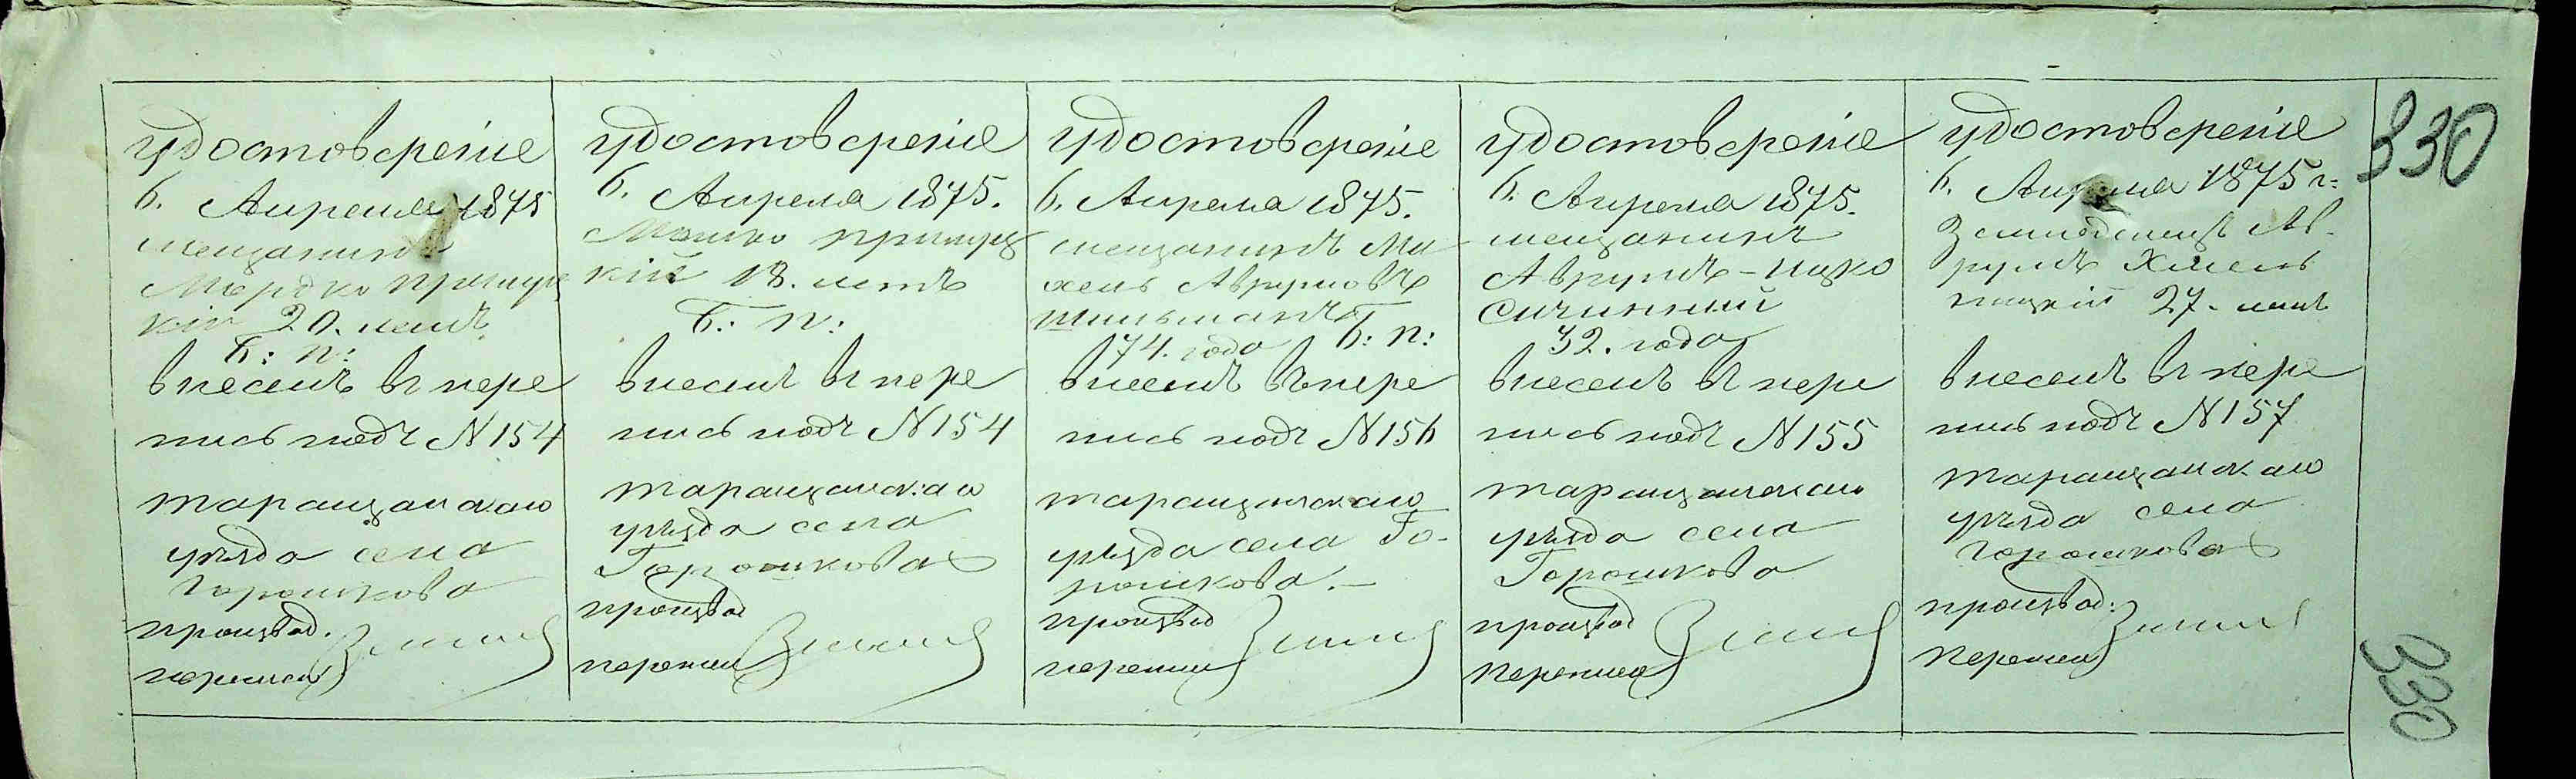 удостовереніе
6. Апреля 1875
мещанинъ
Мордко Прилуц
кій 20. летъ
Б: п:
внесенъ въ пере
пись подъ N 154
таращанскаго
уезда села
Горошкова
производ.
переписи
удостовереніе
6. Апреля 1875.
Мошко Прилуц
кій 18. летъ
Б: п:
внесенъ въ пере
пись подъ N 154
таращанскаго
уезда села
Горошкова
производ
переписи
удостовереніе
6. Апреля 1875.
мещанинъ Ми
хель Аврумовъ
74. года Б: п:
внесенъ въ пере
пись подъ N 156
таращанскаго
уезда села Го-
рошкова.
производ
переписи
удостовереніе
6. Апреля 1875.
мещанинъ
Аврумъ-Ицко
32. года
внесенъ въ пере
пись подъ N 155
таращанскаго
уезда села
Горошкова
производ
переписи
удостовереніе
6. Апреля 1875 г:
Ав-
румъ Хмель
ницкій 27. летъ
внесенъ въ пере
пись подъ N 157
таращанскаго
уезда села
Горошкова
производ:
переписи
330
330